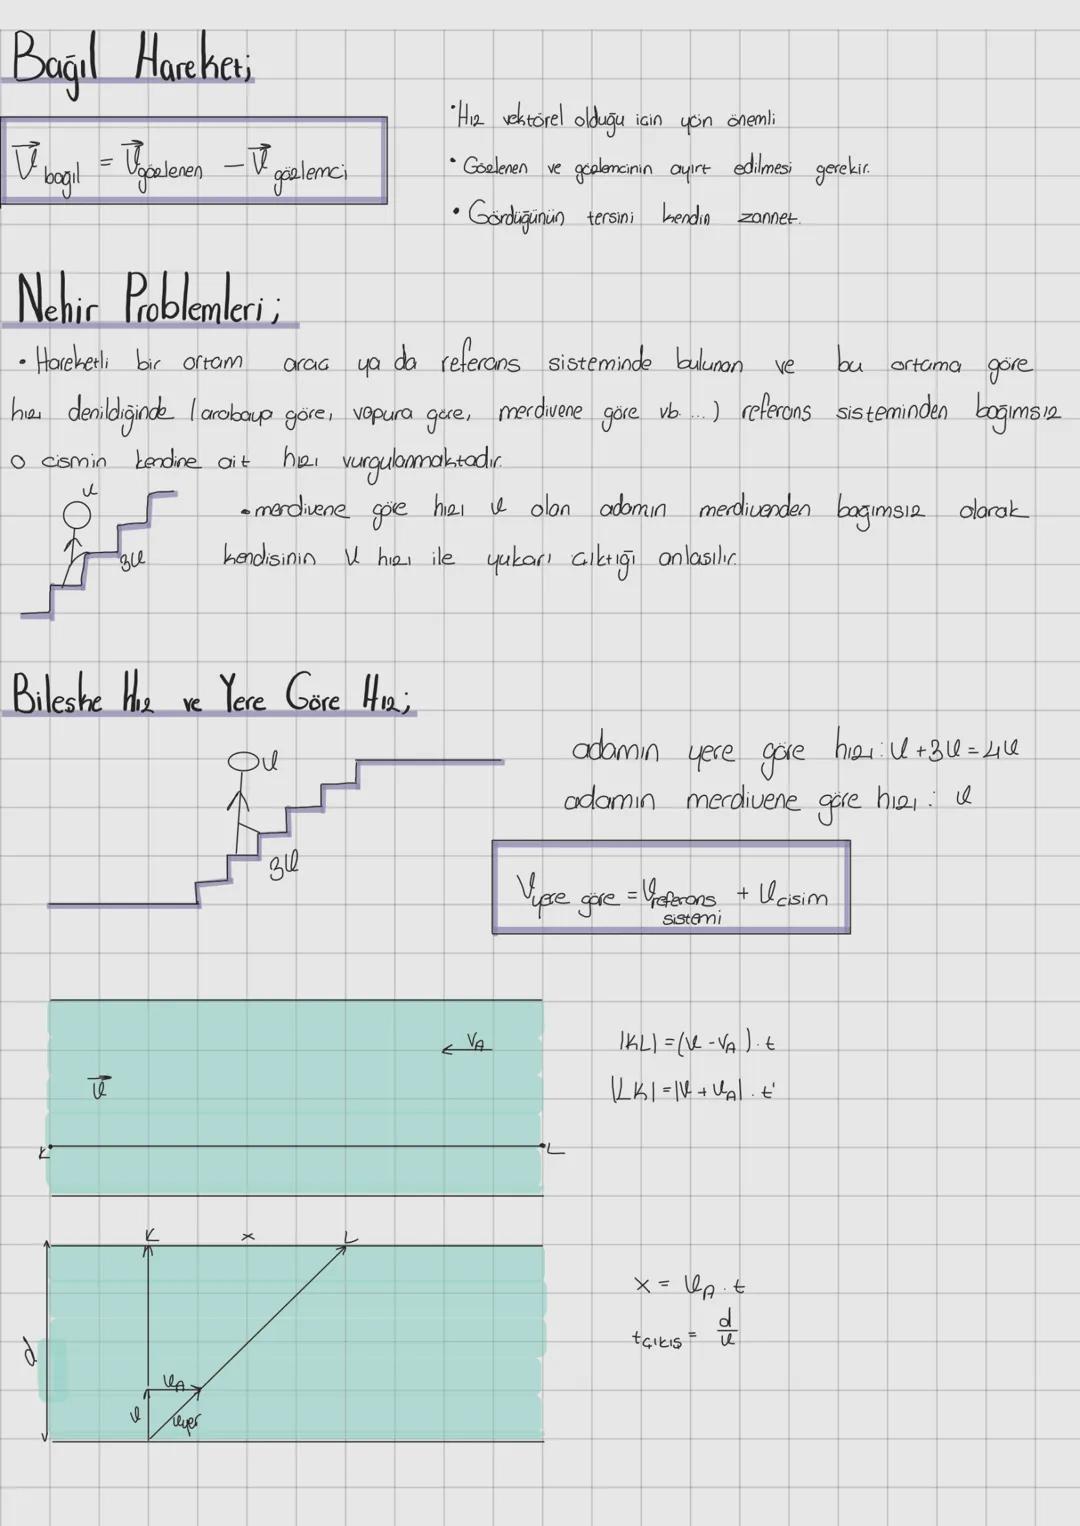 Bağıl Hareket;
V bağıl = V gözlenen - V gözlemci
• Hız vektörel olduğu için yön önemli
• Gözlenen ve gözlemcinin ayırt edilmesi gerekir.
• Gördüğünün tersini kendin zannet.
Nehir Problemleri;
• Hareketli bir ortam araç ya da referans sisteminde bulunan ve bu ortama göre
hız denildiğinde (arabaya göre, vapura göre, merdivene göre vb. ...) referans sisteminden bağımsız
o cismin kendine ait hızı vurgulanmaktadır.
v
3v
• merdivene göre hızı v olan adamın merdivenden bağımsız olarak
kendisinin v hızı ile yukarı çıktığı anlaşılır.
Bileske Hız ve Yere Göre Hız;
v
3v
adamın yere göre hızı: v + 3v = 4v
adamın merdivene göre hızı: v
Vyere göre = Vreferans sistemi + Vcisim
VA
v
K
L
|KL| = (v - vA).t
|LK| = |v + vA|.t'
K x L
d
vA
v
vyer
x = vA.t
tçıkış = d/v